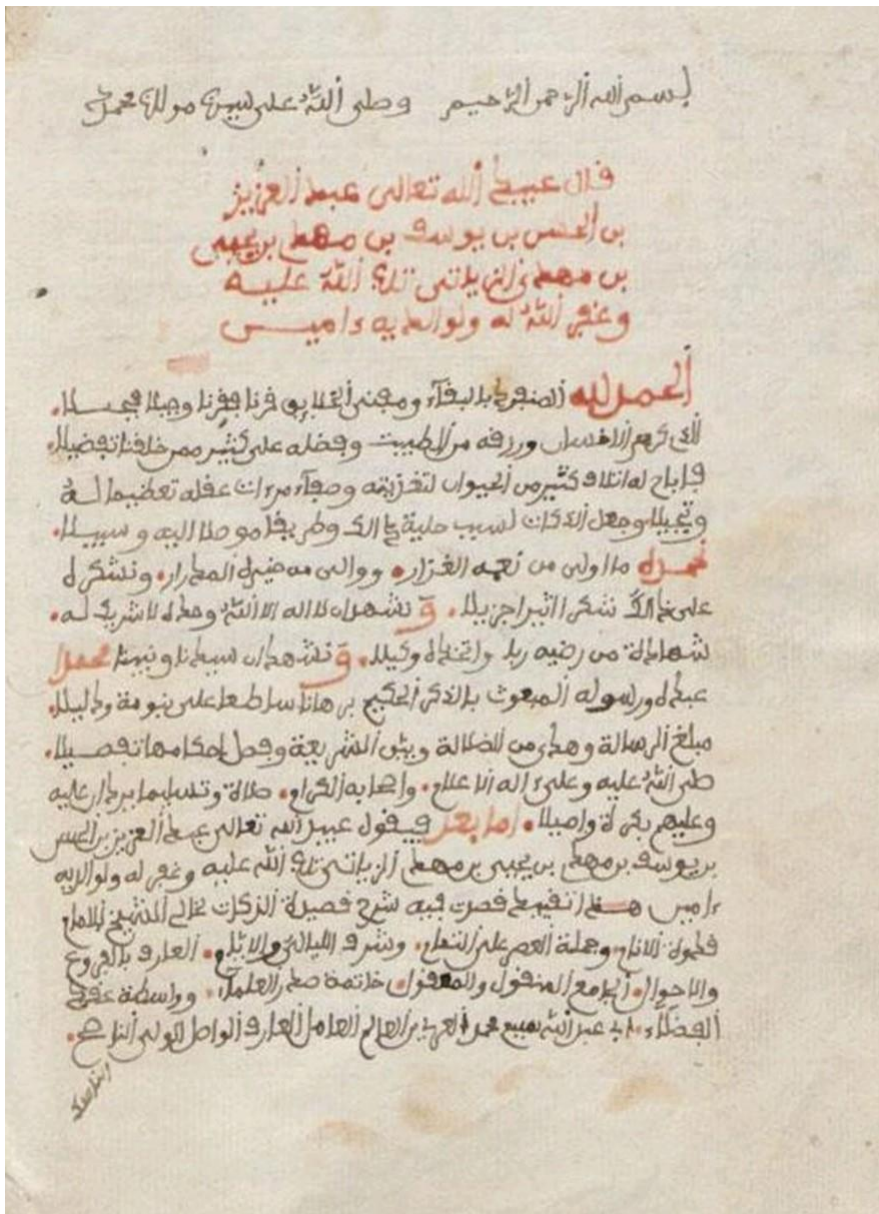 بسم الله الرحمن الرحيم وصلى الله على سيدنا مولانا محمد
قال عبيد الله تعالى عبد العزيز
بن الحسن بن يوسف بن مهدي بن يحيى
بن مهدي الزياتي تاب الله عليه
وغفر الله له ولوالديه ءامين
الحمد لله المنفرد بالبقاء ومفني الخلايق قرنا فقرنا وجيلا فجيلا.
الذي كرم الانسان ورزقه من الطيبت وفضله على كثير ممن خلقنا تفضيلا.
فاباح له اتلاف كثير من الحيوان لتغذيته وصفاء مرءات عقله تعظيما له
وتبجيلا وجعل الذكات لسبب حلية ذالك وطريقا موصلا اليه وسبيلا.
نحمده ما اولى من نعمه الغزار. ووالى من المدرار. ونشكره
على ذالك شكرا اثيرا جزيلا. و نشهد ان لا اله الا الله وحده لا شريك له.
شهادة من رضيه ربا واتخذه وكيلا. و نشهد ان سيدنا ونبينا محمدا
عبده ورسوله المبعوث بالذكر الحكيم برهانا ساطعا على نبوءة ودليلا.
مبلغ الرسالة وهدى من الضلالة وبين الشريعة وفصل احكامها تفصيلا.
صلى الله عليه وعلى ءاله الاعلام. واصحابه الكرام. صلاة وتسليما يردان عليه
وعليهم بكرة واصيلا. اما بعد فيقول عبيد الله تعالى عبد العزيز بن الحسن
بن يوسف بن مهدي بن يحيى بن مهدي الزياتي تاب الله عليه وغفر له ولوالديه
ءامين هذا تقييد قصدت فيه شرح قصيدة الذكات لخالي الشيخ الامام
قدوة الانام. وحملة العصر على التمام. وشرف الليالي والايام. العارف بالفروع
والاصول. الجامع المنقول والمعقول. خاتمة صدر العلماء. وواسطة عقد
الفضلاء. ابي عبد الله سيدي محمد العربي بن العالم العامل العارف الواصل الولي الناصح.